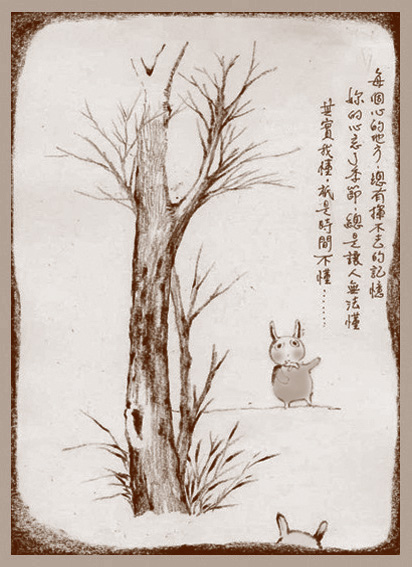 每個心的地方，總有揮不去的記憶
妳的心忘了季節，總是讓人無法懂
其實我懂，祇是時間不懂……